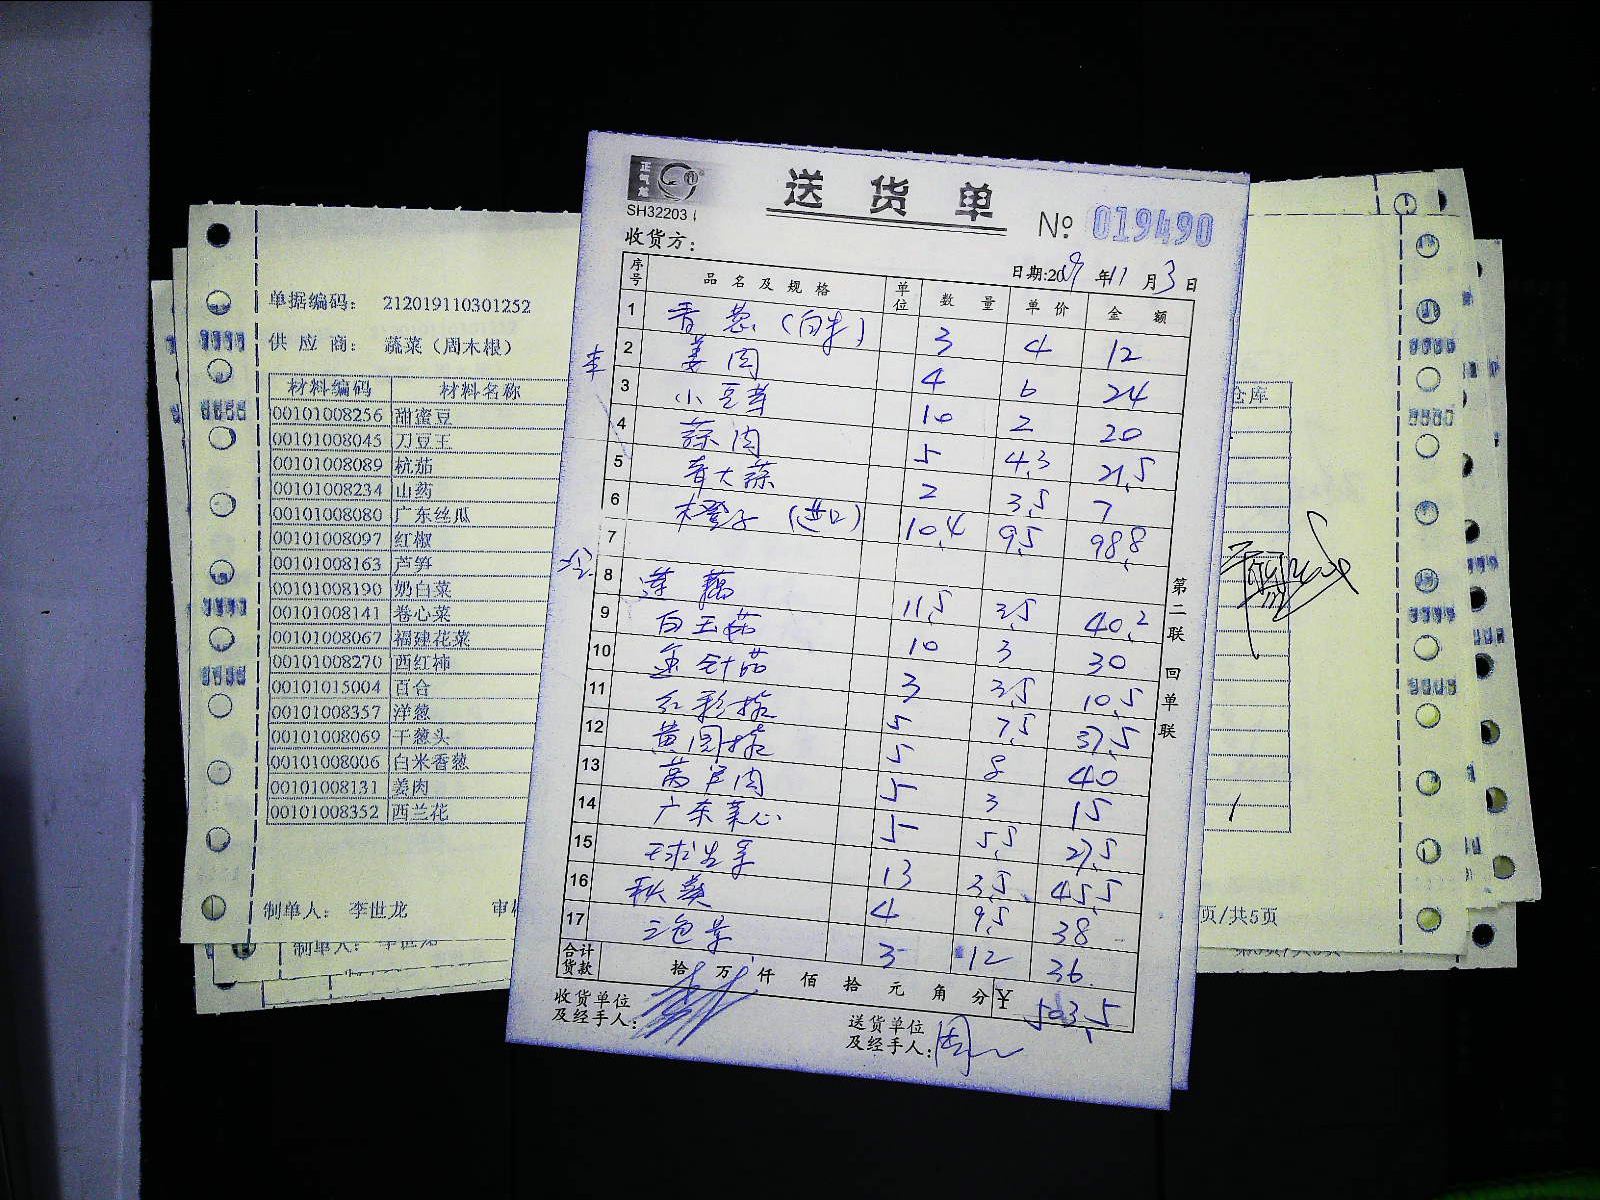 正气龙
SH32203
送货单
№ 019490
收货方:
日期:2019年11月3日
序号 品名及规格 单位 数量 单价 金额
1 香葱(白米) 3 4 12
2 姜肉 4 6 24
3 小豆芽 10 2 20
4 蒜肉 5 4.3 21.5
5 青大蒜 2 3.5 7
6 橙子(进口) 10.4 9.5 98.8
7
8 莲藕 11.5 3.5 40.2
9 白玉菇 10 3 30
10 金针菇 3 3.5 10.5
11 红彩椒 5 7.5 37.5
12 黄圆椒 5 8 40
13 莴笋肉 5 3 15
14 广东菜心 5 5.5 27.5
15 球生菜 13 3.5 45.5
16 秋葵 4 9.5 38
17 三色堇 3 12 36
合计货款 拾万仟佰拾元角分 ¥ 503.5
收货单位及经手人:
送货单位及经手人: 周
第二联 回单联
单据编码: 212019110301252
供应商: 蔬菜(周木根)
材料编码 材料名称
00101008256 甜蜜豆
00101008045 刀豆王
00101008089 杭茄
00101008234 山药
00101008080 广东丝瓜
00101008097 红椒
00101008163 芦笋
00101008190 奶白菜
00101008141 卷心菜
00101008067 福建花菜
00101008270 西红柿
00101015004 百合
00101008357 洋葱
00101008069 干葱头
00101008006 白米香葱
00101008131 姜肉
00101008352 西兰花
制单人: 李世龙
制单人: 李世龙
仓库
页/共5页